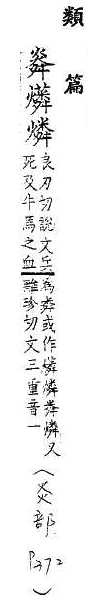 類篇
㷠燐燐
良刃切說文兵
死及牛馬之血
為粦或作燐燐粦燐又
離珍切文三重音一
(炎部 P372)